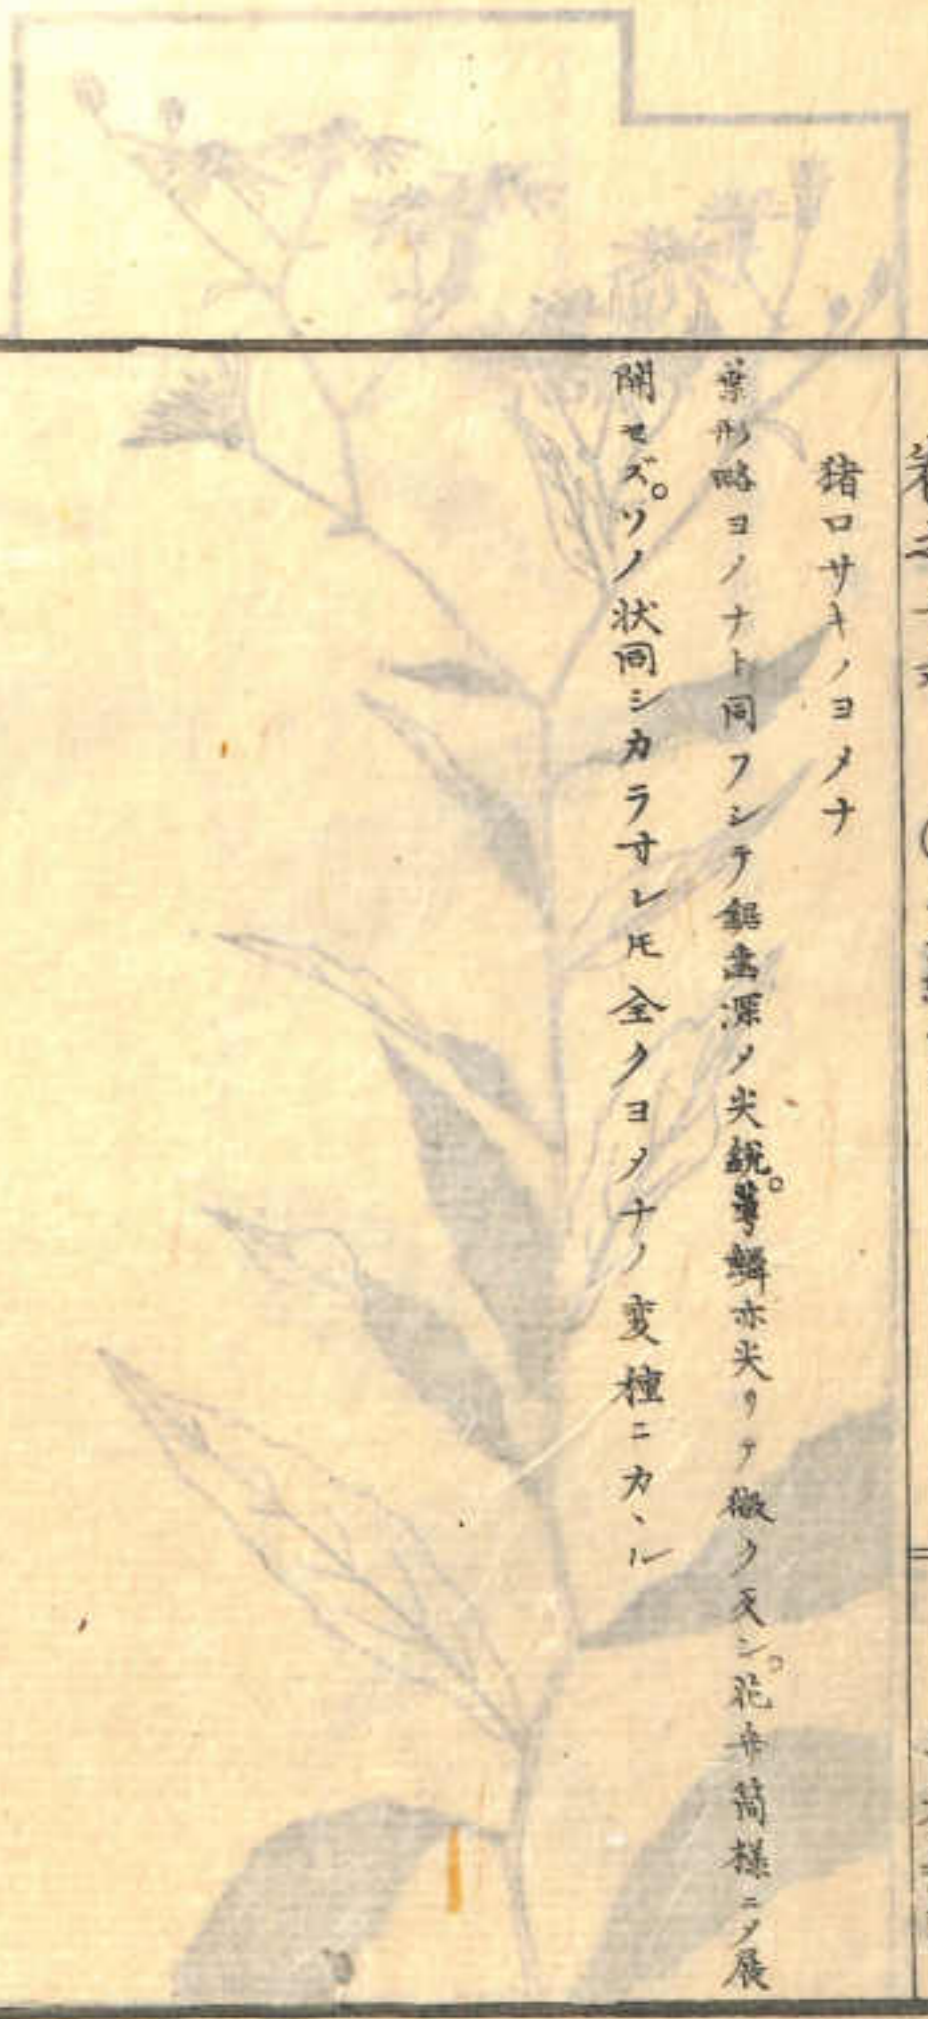 猪口サキノヨメナ
葉形略ヨノナト同フシテ鋸歯深ク尖鋭。萼鱗亦尖リテ微ク反シ。花弁筒様ニ〆展
開セズ。ソノ状同シカラサレ𪜈全クヨメナノ変種ニカヽル